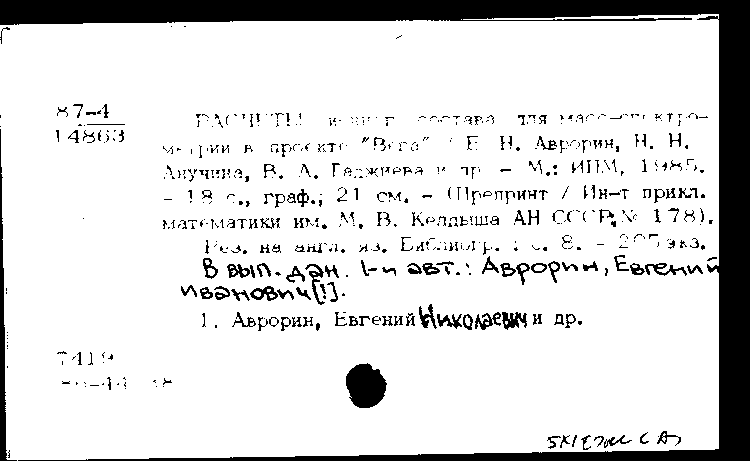 87-4
14863
РАСЧЕТЫ ионного состава для масс-спектро-
метрии в проекте "Вега" / Е. Н. Аврорин, Н. Н.
Анучина, В. А. Гаджиева и др. - М.: ИПМ, 1985.
- 18 с., граф.; 21 см. - (Препринт / Ин-т прикл.
математики им. М. В. Келдыша АН СССР, № 178).
Рез. на англ. яз. Библиогр.: с. 8. - 205 экз.
В вып. дан. 1-й авт.: Аврорин, Евгений
Иванович [!].
1. Аврорин, Евгений Николаевич и др.
7419